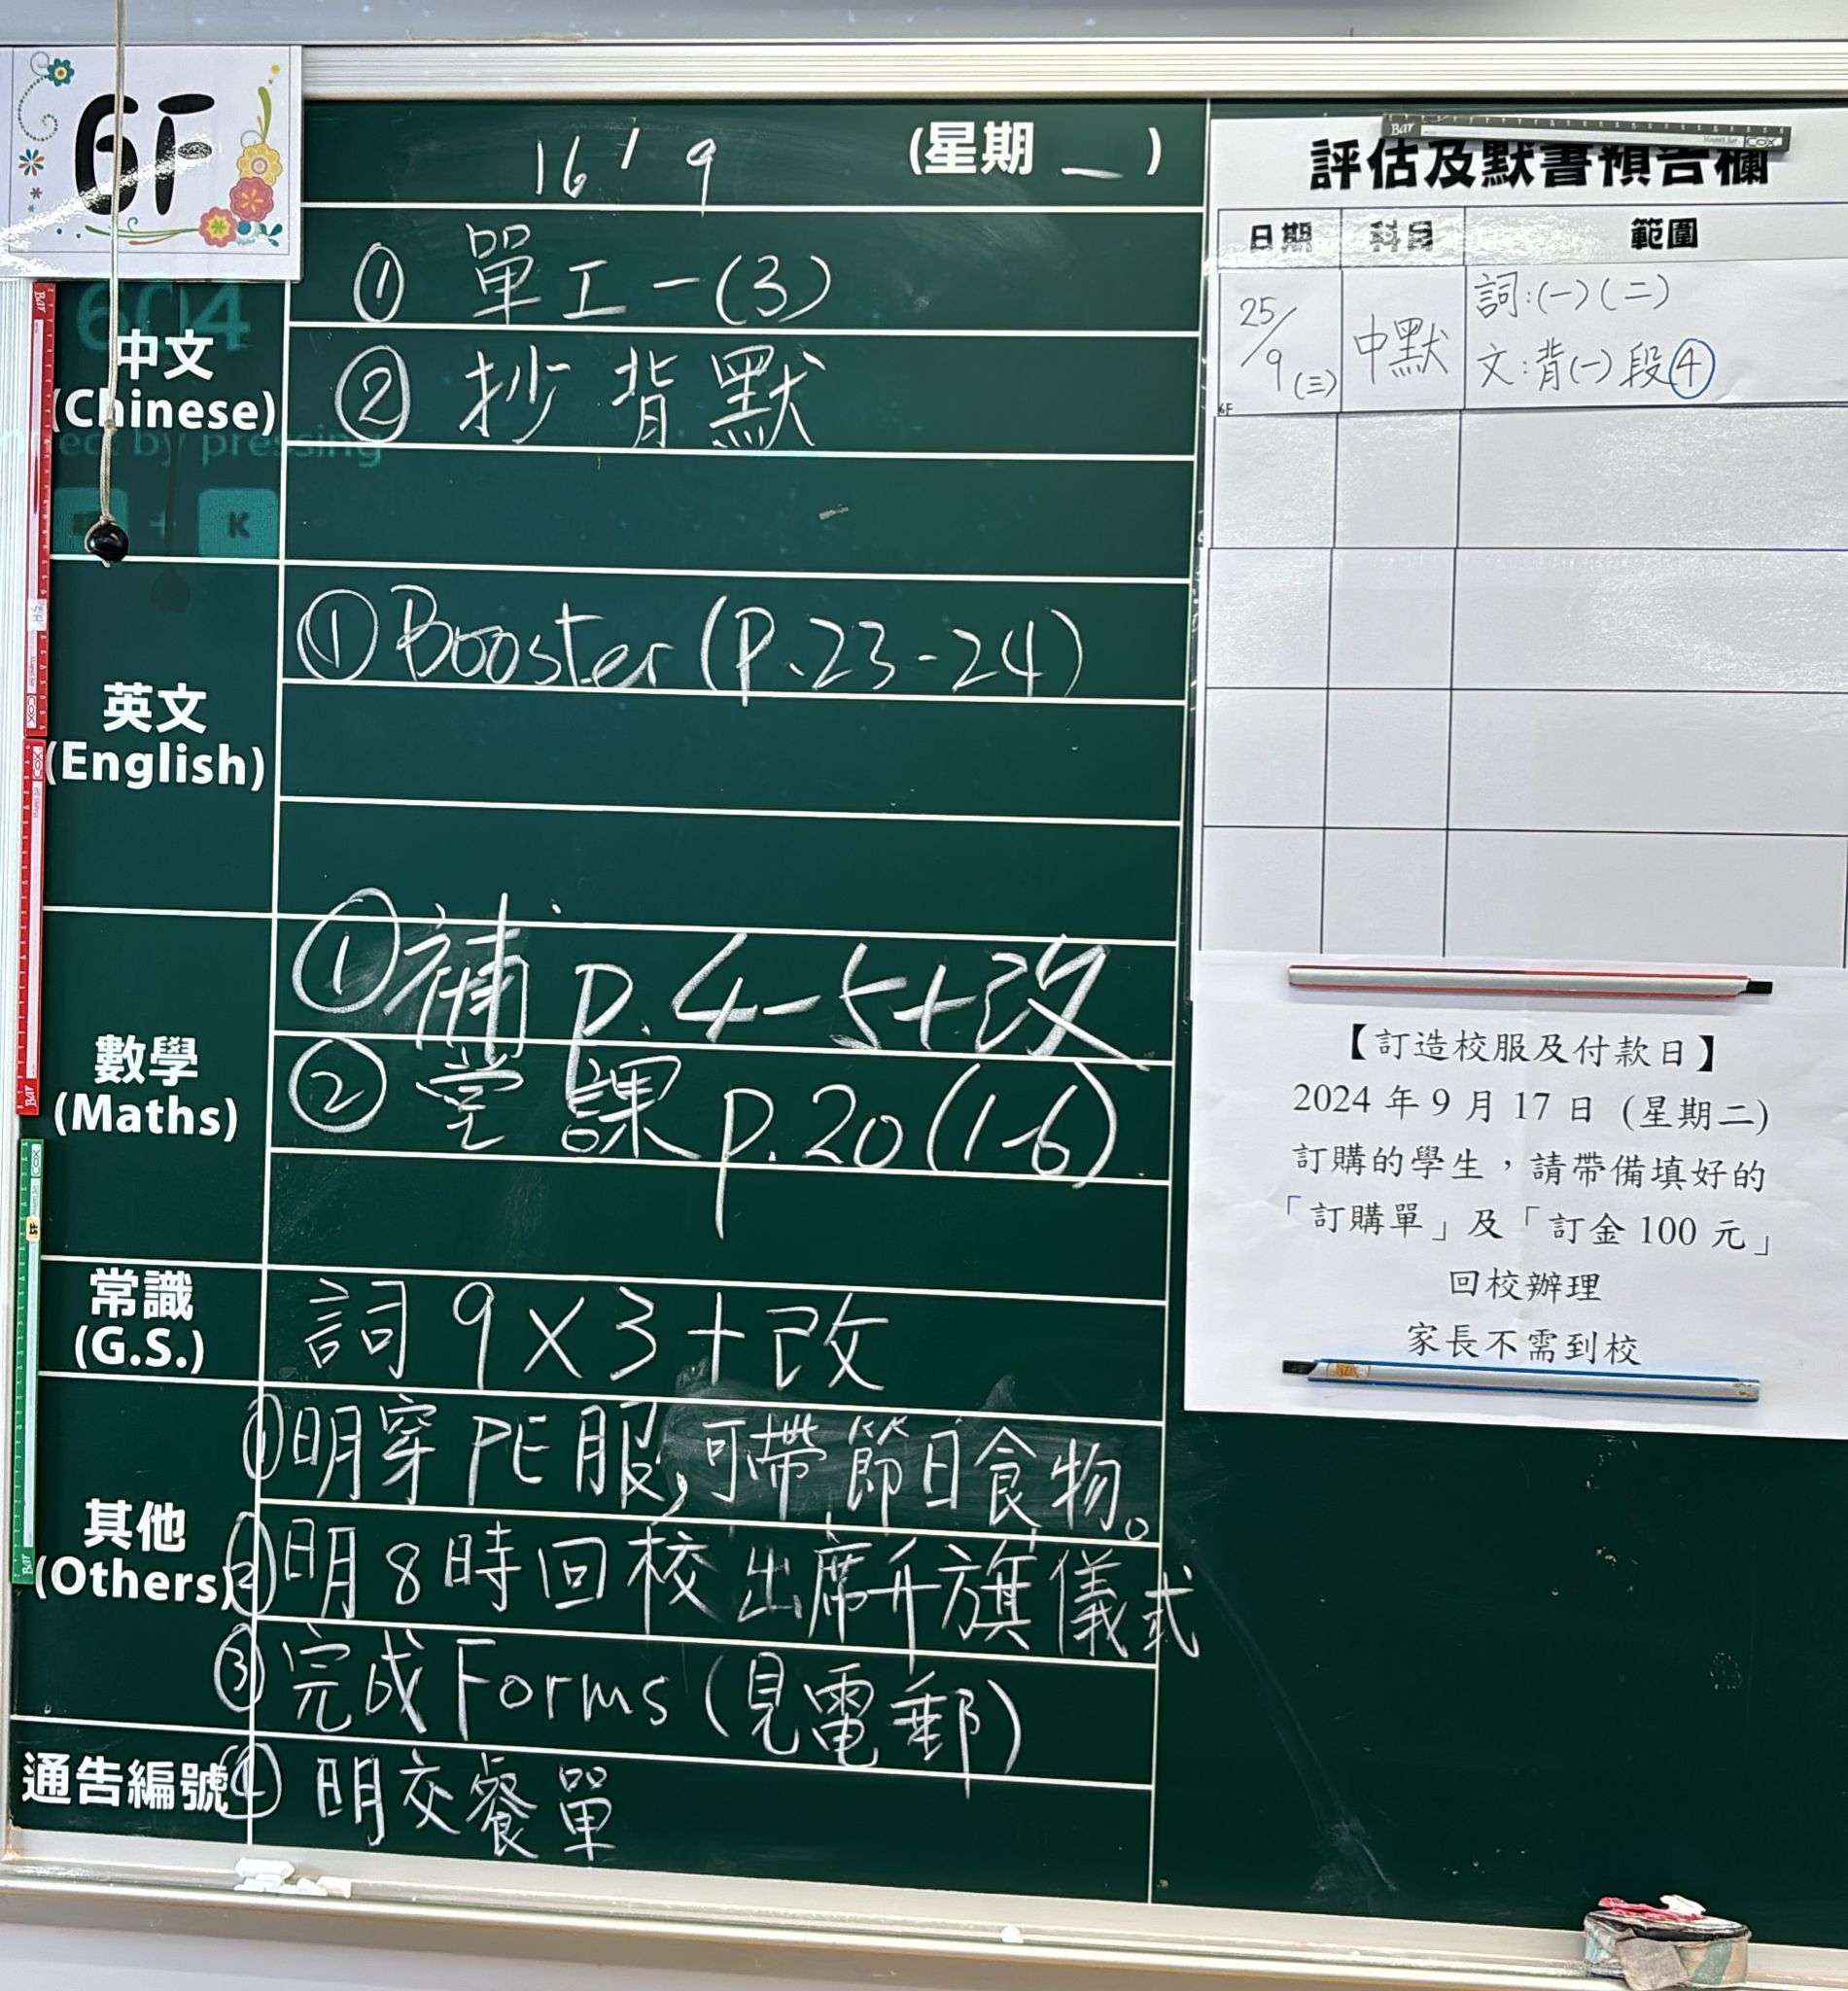 6F
16/9 (星期一)
中文
(Chinese)
① 單工一(3)
② 抄背默
604
by pressing
K
英文
(English)
① Booster (P.23-24)
數學
(Maths)
① 補 p.4-5+改
② 堂課 p.20 (1-6)
常識
(G.S.)
詞9×3+改
其他
(Others)
① 明穿PE服,可帶節日食物。
② 明8時回校出席升旗儀式
③ 完成Forms (見電郵)
通告編號
④ 明交餐單
評估及默書預告欄
日期 科目 範圍
25/9(三) 中默 詞:(一)(二)
文:背(一)段④
6F
【訂造校服及付款日】
2024年9月17日 (星期二)
訂購的學生,請帶備填好的
「訂購單」及「訂金100元」
回校辦理
家長不需到校